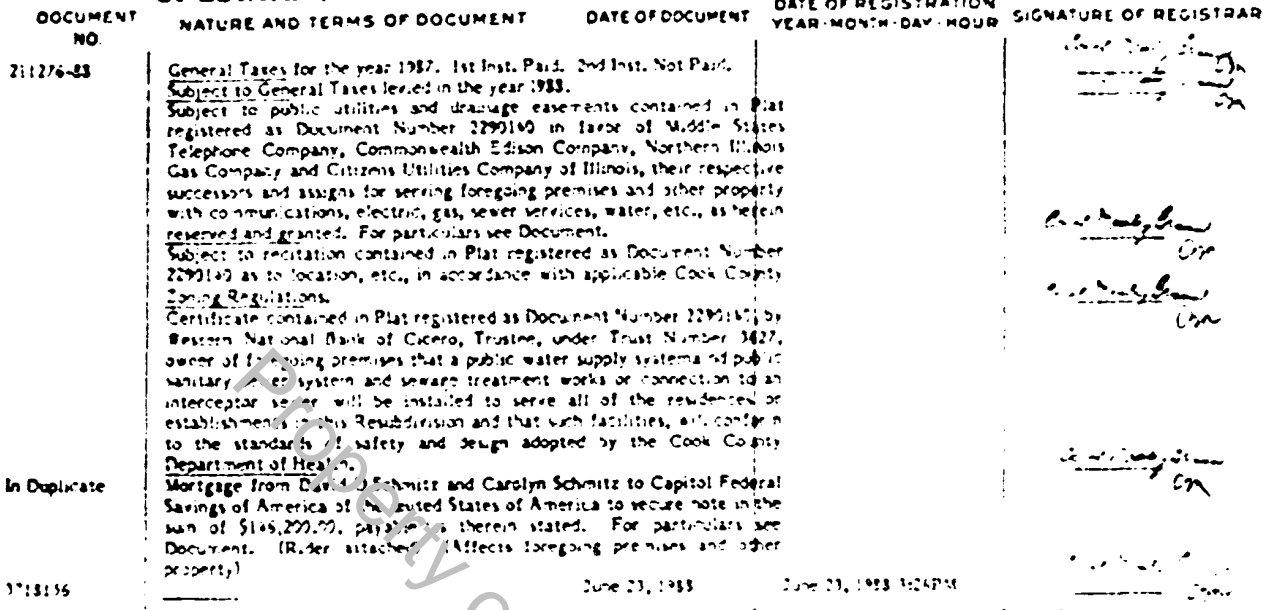 DOCUMENT NO.
NATURE AND TERMS OF DOCUMENT
DATE OF DOCUMENT
DATE OF REGISTRATION
YEAR-MONTH-DAY-HOUR
SIGNATURE OF REGISTRAR
211276-88
General Taxes for the year 1987. 1st Inst. Paid. 2nd Inst. Not Paid.
Subject to General Taxes levied in the year 1988.
Subject to public utilities and drainage easements contained in Plat
registered as Document Number 2290140 in favor of Middle States
Telephone Company, Commonwealth Edison Company, Northern Illinois
Gas Company and Citizens Utilities Company of Illinois, their respective
successors and assigns for serving foregoing premises and other property
with communications, electric, gas, sewer services, water, etc., as herein
reserved and granted. For particulars see Document.
Subject to recitation contained in Plat registered as Document Number
2290140 as to location, etc., in accordance with applicable Cook County
Zoning Regulations.
Certificate contained in Plat registered as Document Number by
Western National Bank of Cicero, Trustee, under Trust Number 3427,
owner of foregoing premises that a public water supply system and public
sanitary sewer system and sewage treatment works or connection to an
interceptor sewer will be installed to serve all of the residences or
establishments in this Resubdivision and that such facilities, will conform
to the standards of safety and design adopted by the Cook County
Department of Health.
In Duplicate
Mortgage from David Schmitz and Carolyn Schmitz to Capitol Federal
Savings of America of the United States of America to secure note in the
sum of payable as therein stated. For particulars see
Document. (Rider attached) (Affects foregoing premises and other
property)
3718156
June 23, 1988
June 23, 1988 3:26PM
Property o